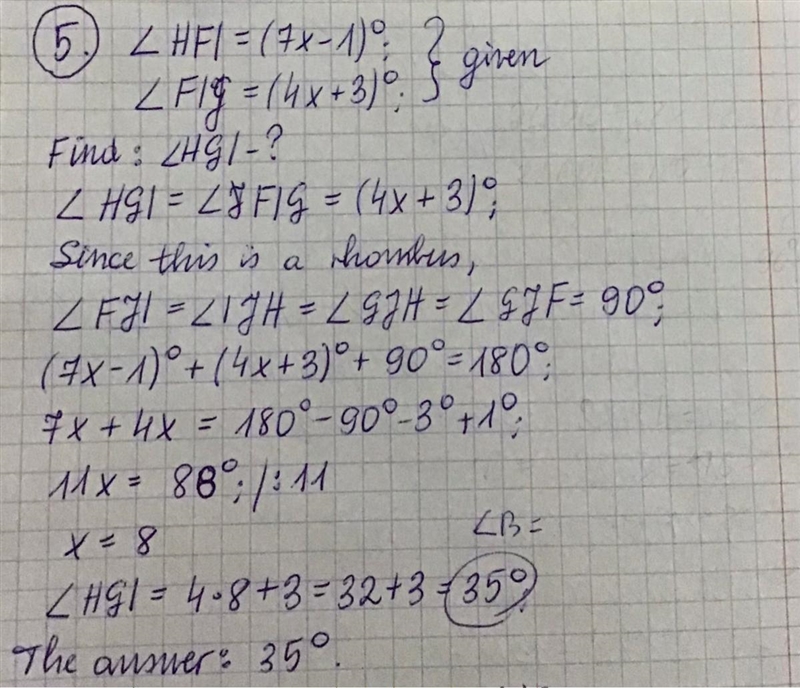 5. ∠HFI = (7x-1)°; } given
∠FIG = (4x+3)°;
Find: ∠HGI - ?
∠HGI = ∠JFIG = (4x+3)°;
Since this is a rhombus,
∠FJI = ∠IJH = ∠GJH = ∠GJF = 90°;
(7x-1)° + (4x+3)° + 90° = 180°;
7x + 4x = 180° - 90° - 3° + 1°;
11x = 88°; /:11
x = 8
∠B =
∠HGI = 4·8+3 = 32+3 = 35°.
The answer: 35°.